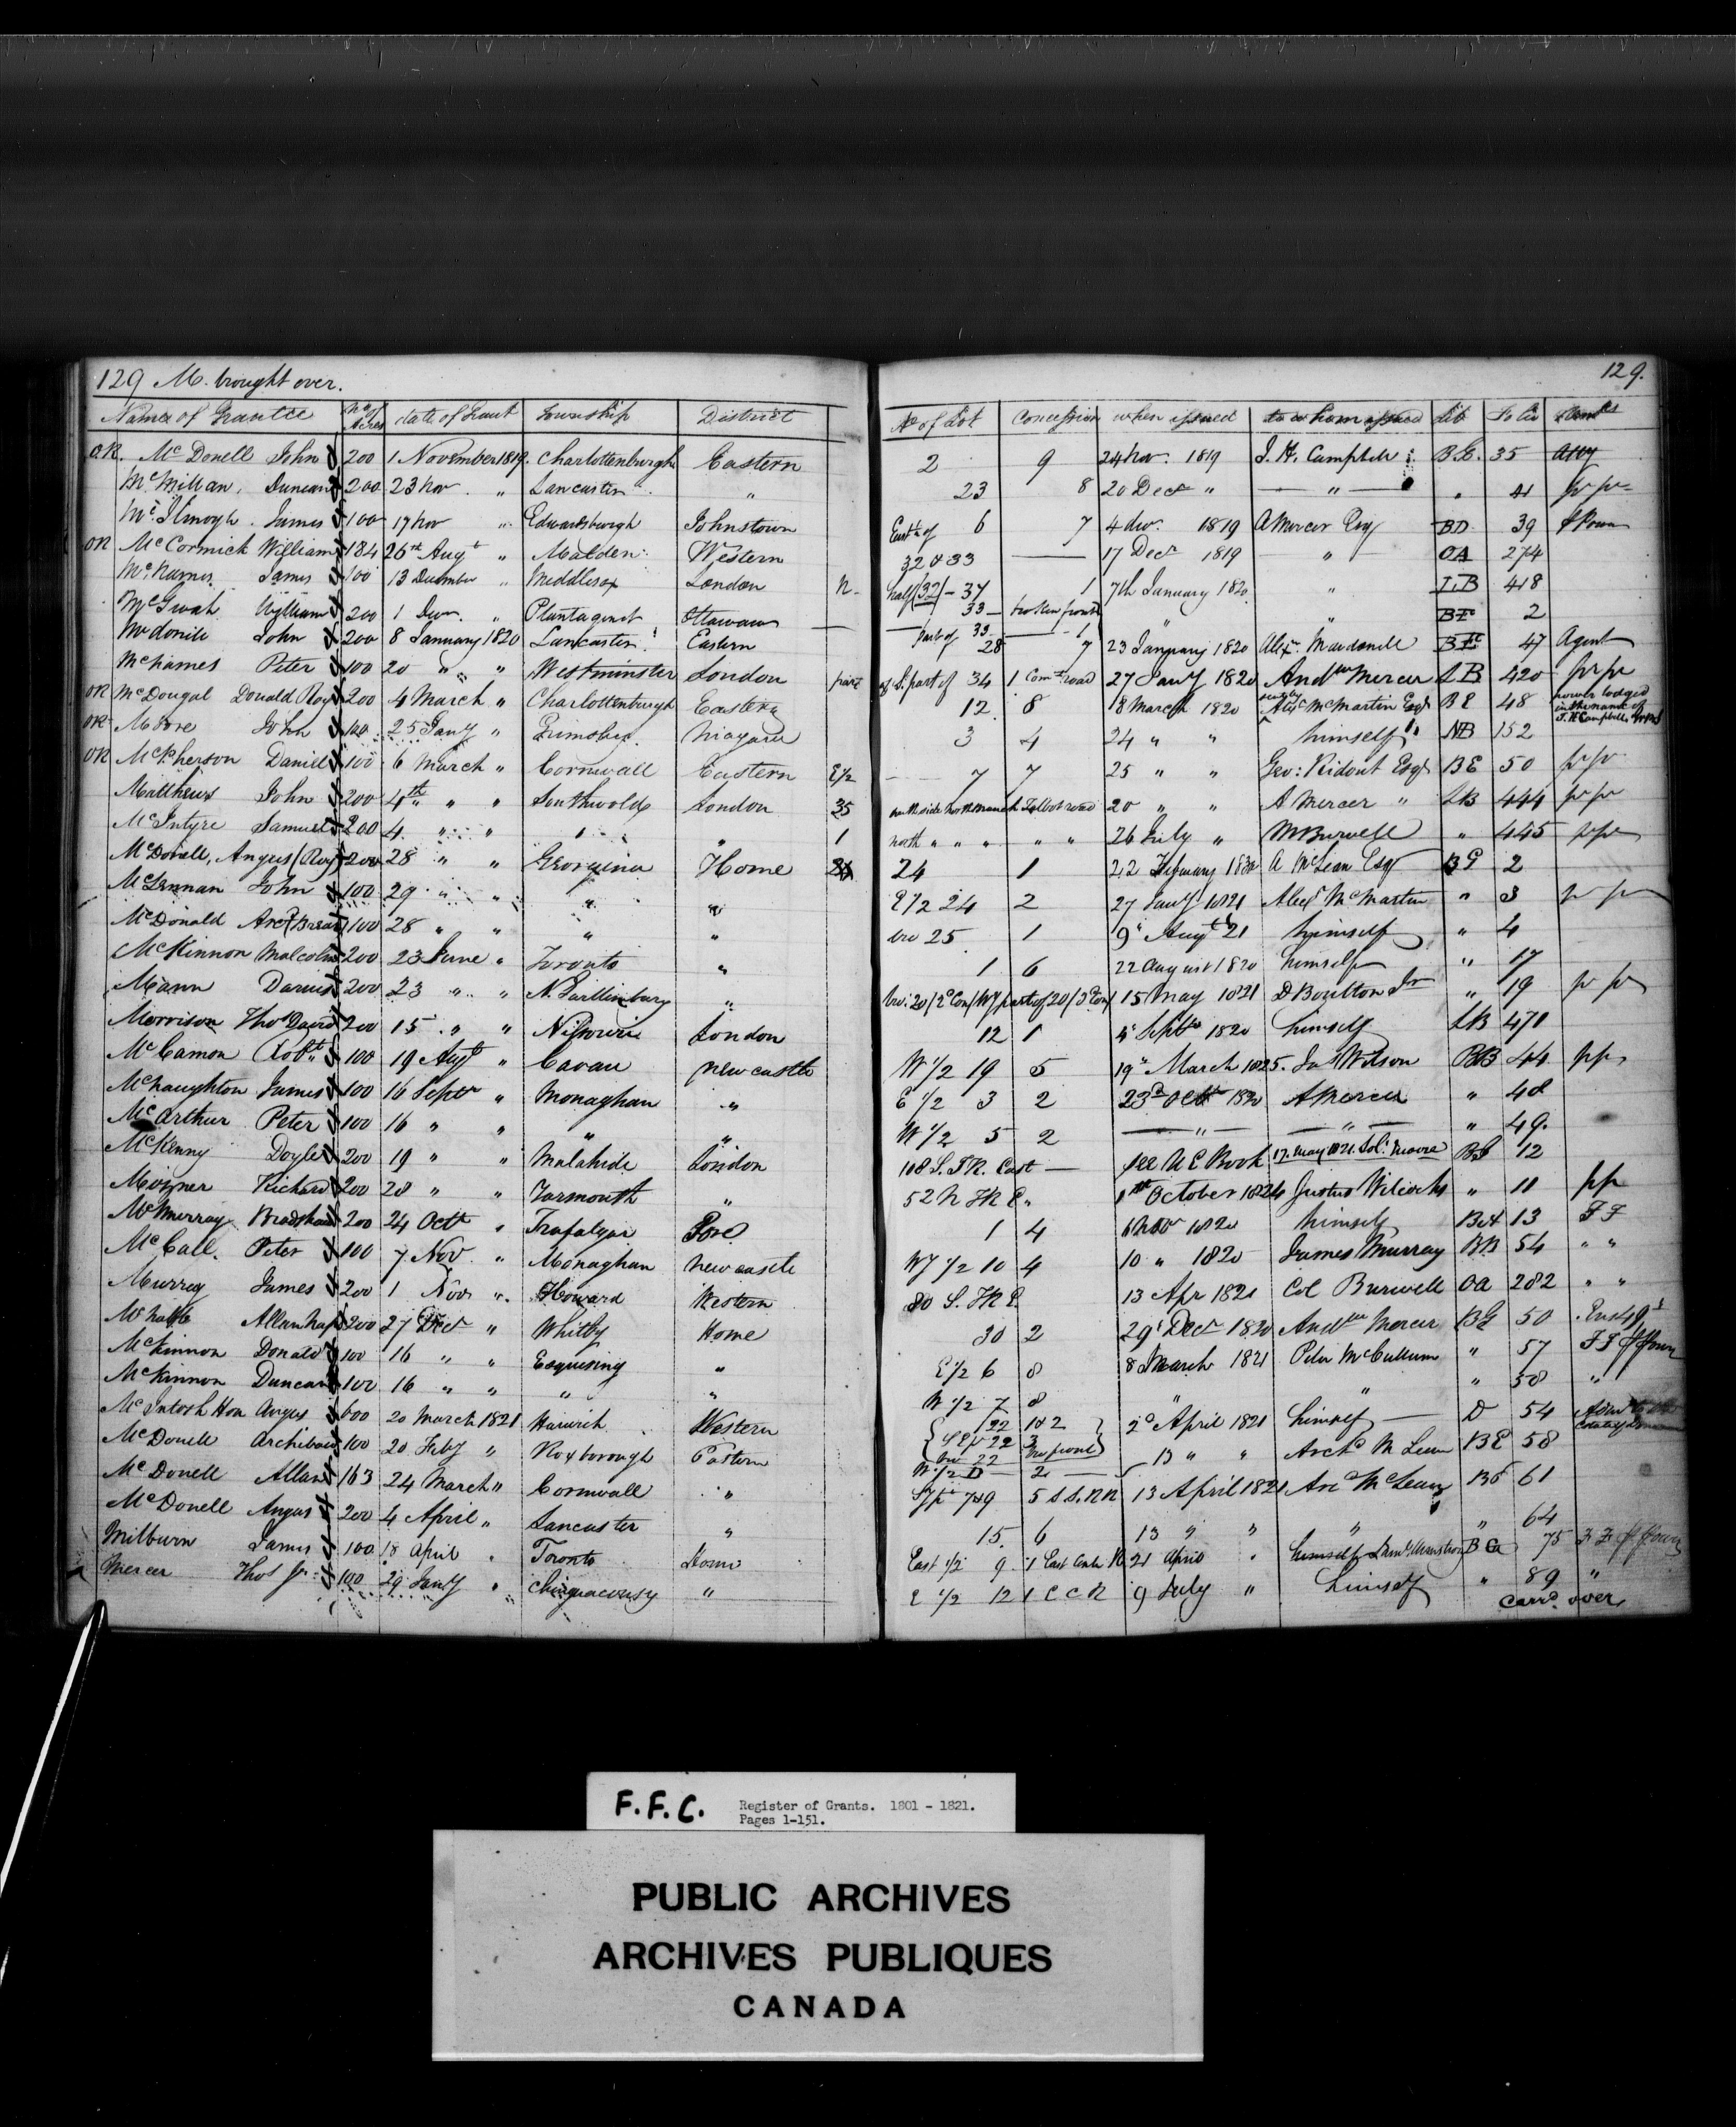 129 M. brought over.
129.
Name of Grantee No. of Acres date of Grant Township District No of Lot Concession when issued to whom issued Lib Folio
OR. McDonell John 200 1 November 1819. Charlottenburgh Eastern 2 9 24 Nov. 1819 J. H. Campbell B.E. 35 Atty
McMillan, Duncan 200 23 Nov " Lancaster " 23 8 20 Decr " " " 41 pr pr
James 100 17 Nov " Edwardsburgh Johnstown East ½ of 6 7 4 1819 A Mercer Esq BD 39
OR McCormick William 184 26th Augt " Malden Western 32 & 33 17 Decr 1819 " OA 274
James 100 13 December " Middlesex London N. half (32) - 34 1 7th January 1820 " LB 418
William 200 1 " Plantagenet Ottawa 33 - broken front " " 2
John 200 8 January 1820 Lancaster Eastern part of 33 28 7 23 January 1820 Alexr. Macdonell BE 47 Agent
McNames Peter 100 20 " " Westminster London part of S. part of 34 1 Comn. road 27 Jany 1820 Andw Mercer LB 420 pr pr
OR McDougal Donald Roy 200 4 March " Charlottenburgh Eastern 12 8 18 March 1820 Alexr McMartin Esqr BE 48 power lodged in the name of J. H. Campbell
OR Moore John 100 25 Jany " Grimsby Niagara 3 4 24 " " himself NB 152
OR McPherson Daniel 100 6 March " Cornwall Eastern E½ 7 7 25 " " Geo: Ridout Esqr BE 50 pr pr
Matthews John 200 4th " " Southwold London 35 north side north branch Talbot road 20 " " A Mercer " LB 444 pr pr
McIntyre Samuel 200 4 " " " " 1 north " " " " " 26 July " M Burwell " 445 pr pr
McDonell, Angus (Roy) 200 28 " " Georgina Home 24 1 22 February A McLean Esqr BG 2
McLennan John 100 29 " " " " E½ 24 2 27 Jany 1821 Alexr McMartin " 3 pr pr
McDonald 100 28 " " " " 25 1 9 Augt 21 himself " 4
McKinnon Malcolm 200 23 June " Toronto " 1 6 22 August 1820 himself " 17
Mann Darius 200 23 " " N. Gwillimbury " 20 / 2d Con / Wy part of 20 / 3d Con / 15 May 1821 D Boulton Jr " 19 pr pr
Morrison Thos David 200 15 " " Nissouri London 12 1 4 Septr 1820 himself LB 471
McCamon Robt 100 19 Augt " Cavan Newcastle W½ 19 5 19 March 1825. Jas Wilson BB 44 pp
McNaughton James 100 16 Septr " Monaghan " E½ 3 2 23d Octr 1820 A Mercer " 48
McArthur Peter 100 16 " " " " W½ 5 2 " " " 49.
McKenny Doyle 200 19 " " Malahide London 118 S. T.R. East See U C Book 17. May 1821. Moore 12
Richard 200 28 " " Yarmouth " 52 N TR E. October 1824 Justus Wilcocks " 11 pp
McMurray Bradshaw 200 24 Octr " Trafalgar Gore 1 4 6 Nov 1820 himself 13 FF
McCall Peter 100 7 Nov. " Monaghan Newcastle Wy ½ 10 4 10 " 1820 James Murray BB 54 " "
Murray James 200 1 Nov " Howard Western 80 S. TR E. 13 Apr 1821 Col Burwell OA 282 " "
McNabb Allan 200 27 Decr " Whitby Home 30 2 29 Decr 1820 Andw Mercer BG 50
McKinnon Donald 100 16 " " Esquesing " E½ 6 8 8 March 1821 Peter McCullum " 57 FF
McKinnon Duncan 100 16 " " " " W½ 7 8 " " " 58 "
McIntosh Hon Angus 600 20 March 1821 Harwich Western 22 1 & 2 22 3 22 front 2d April 1821 himself D 54
McDonell Archibald 100 20 Feby " Roxborough Eastern W½ D 2 13 " " Archd McLean BE 58
McDonell Allan 163 24 March " Cornwall " 7 & 9 5 13 April 1821 Arc McLean BE 61
McDonell Angus 200 4 April " Lancaster " 15. 6 13 " " " " 64
Milburn James 100 18 April " Toronto Home East ½ 9 1 East Centre R 21 April " himself BG 75 FF
Mercer Thos Jr 100 29 Jany " Chinguacousy " E ½ 12 1 E C R 9 July " himself " 89 "
Carrd. over
F.F.C. Register of Grants. 1801 - 1821.
Pages 1-151.
PUBLIC ARCHIVES
ARCHIVES PUBLIQUES
CANADA